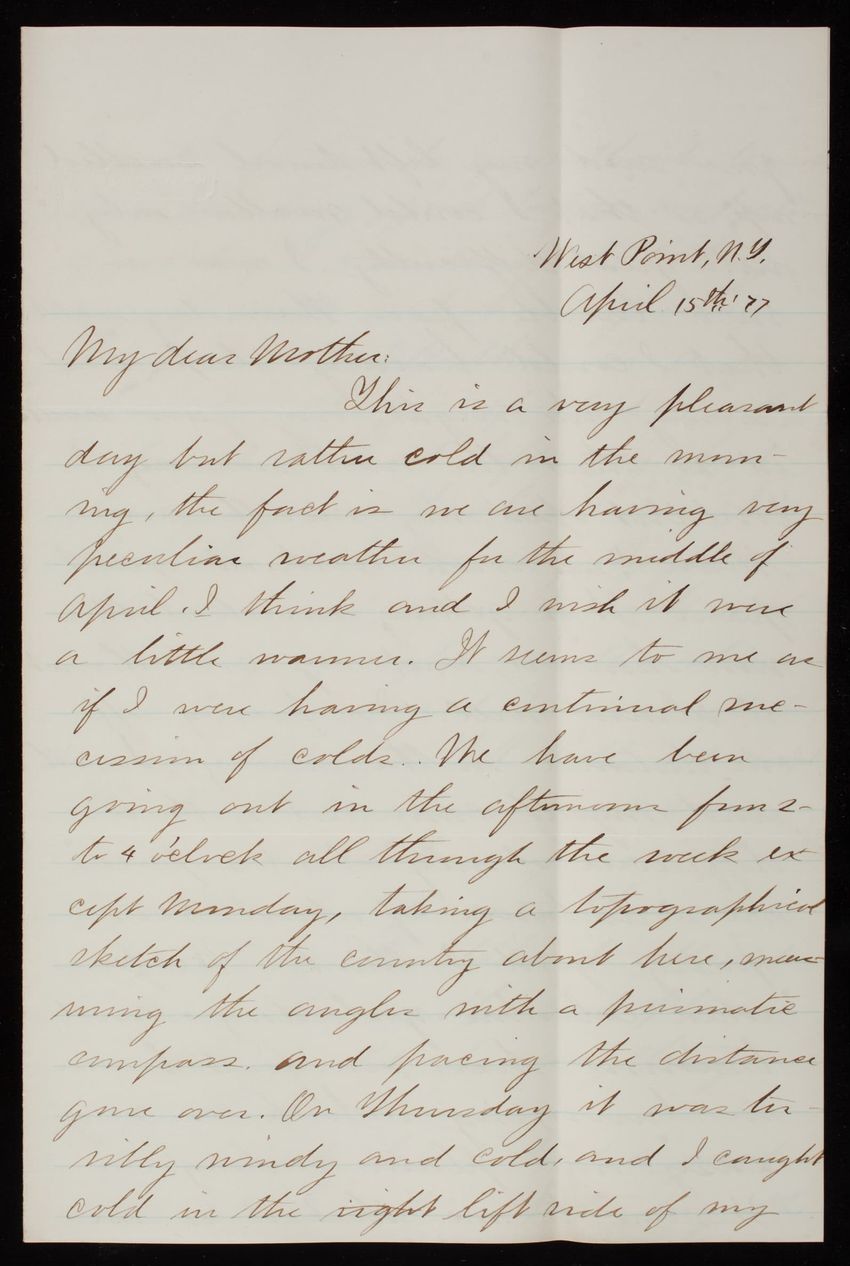 West Point, N.Y.
April 15th '77
My dear Mother:
This is a very pleasant
day but rather cold in the morn-
ing, the fact is we are having very
peculiar weather for the middle of
April. I think and I wish it were
a little warmer. It seems to me as
if I were having a continual suc-
cession of colds. We have been
going out in the afternoons from 2-
to 4 o'clock all through the week ex
cept Monday, taking a topographical
sketch of the country about here, meas-
uring the angles with a prismatic
compass. and pacing the distance
gone over. On Thursday it was ter-
ribly windy and cold, and I caught
cold in the right left side of my